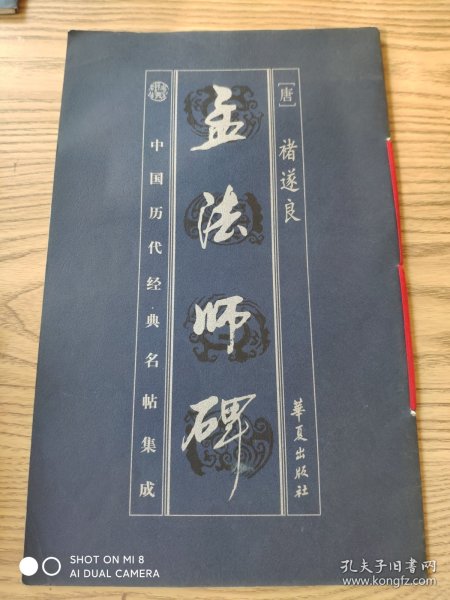 [唐]
褚遂良
孟法师碑
中国历代经·典名帖集成
華夏出版社
SHOT ON MI 8
AI DUAL CAMERA
孔夫子旧书网
www.kongfz.com